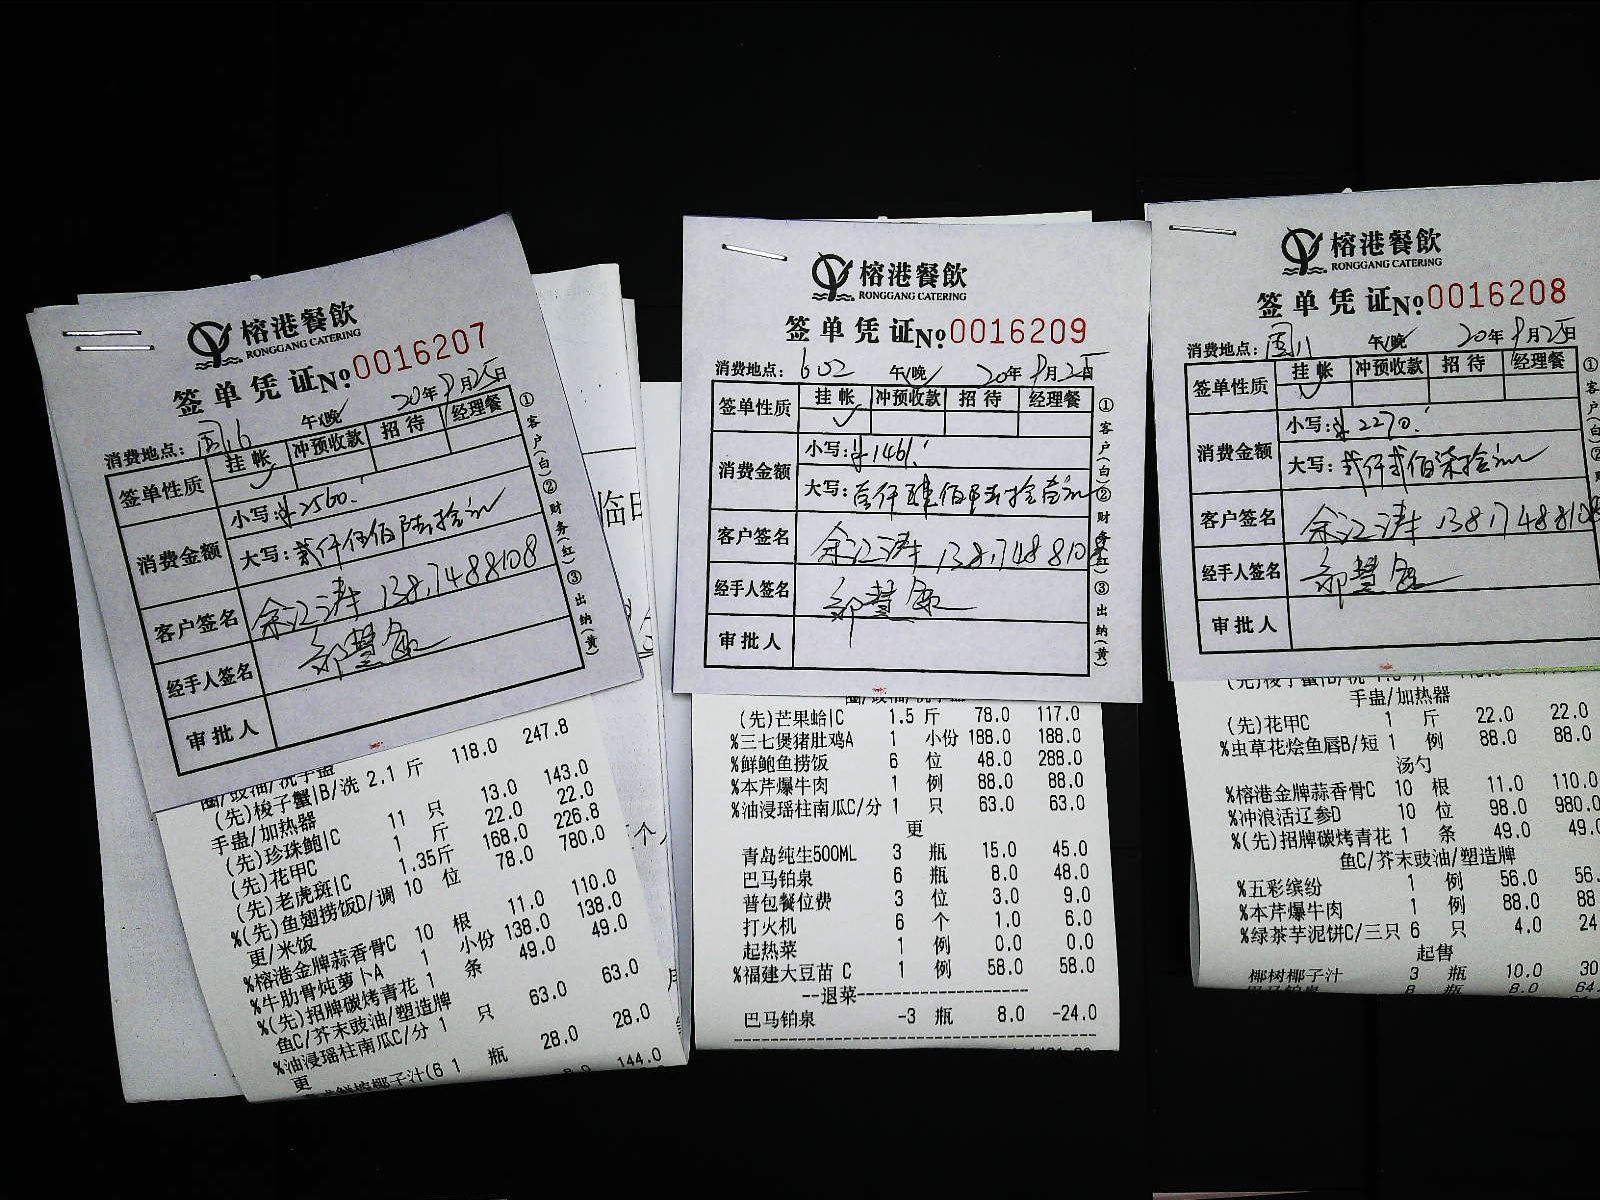 榕港餐飲
RONGGANG CATERING
签单凭证 № 0016207
20年9月25日
消费地点: 国16 午/晚
签单性质 挂帐 冲预收款 招待 经理餐
消费金额
小写: ¥2560.
大写: 贰仟伍佰陆拾元
客户签名 余江涛 138,7488108
经手人签名
审批人
①客户(白)②财务(红)③出纳(黄)
圈/豉油/洗手盅
(先)梭子蟹|B/洗 2.1 斤 118.0 247.8
手蛊/加热器
(先)珍珠鲍|C 11 只 13.0 143.0
(先)花甲C 1 斤 22.0 22.0
(先)老虎斑|C 1.35斤 168.0 226.8
%(先)鱼翅捞饭D/调 10 位 78.0 780.0
更/米饭
%榕港金牌蒜香骨C 10 根 11.0 110.0
%牛肋骨炖萝卜A 1 小份 138.0 138.0
%(先)招牌碳烤青花 1 条 49.0 49.0
鱼C/芥末豉油/塑造牌
%油浸瑶柱南瓜C/分 1 只 63.0 63.0
更
椰子汁(6 1 瓶 28.0 28.0
8.0 144.0
临时
榕港餐飲
RONGGANG CATERING
签单凭证 № 0016209
消费地点: 602 午/晚 20年9月25日
签单性质 挂帐 冲预收款 招待 经理餐
消费金额
小写: ¥1461.
大写: 壹仟肆佰陆拾壹元
客户签名 余江涛 138,7488108
经手人签名
审批人
①客户(白)②财务(红)③出纳(黄)
(先)芒果蛤|C 1.5 斤 78.0 117.0
%三七煲猪肚鸡A 1 小份 188.0 188.0
%鲜鲍鱼捞饭 6 位 48.0 288.0
%本芹爆牛肉 1 例 88.0 88.0
%油浸瑶柱南瓜C/分 1 只 63.0 63.0
更
青岛纯生500ML 3 瓶 15.0 45.0
巴马铂泉 6 瓶 8.0 48.0
普包餐位费 3 位 3.0 9.0
打火机 6 个 1.0 6.0
起热菜 1 例 0.0 0.0
%福建大豆苗 C 1 例 58.0 58.0
--退菜--
巴马铂泉 -3 瓶 8.0 -24.0
榕港餐飲
RONGGANG CATERING
签单凭证 № 0016208
消费地点: 国八 午/晚 20年9月25日
签单性质 挂帐 冲预收款 招待 经理餐
消费金额
小写: ¥2270.
大写: 贰仟贰佰柒拾元
客户签名 余江涛 138,7488108
经手人签名
审批人
手蛊/加热器
(先)花甲C 1 斤 22.0 22.0
%虫草花烩鱼唇B/短 1 例 88.0 88.0
汤勺
%榕港金牌蒜香骨C 10 根 11.0 110.0
%冲浪活辽参D 10 位 98.0 980.0
%(先)招牌碳烤青花 1 条 49.0 49.0
鱼C/芥末豉油/塑造牌
%五彩缤纷 1 例 56.0 56.
%本芹爆牛肉 1 例 88.0 88
%绿茶芋泥饼C/三只 6 只 4.0 24
起售
椰树椰子汁 3 瓶 10.0 30
巴马铂泉 8 瓶 8.0 64.